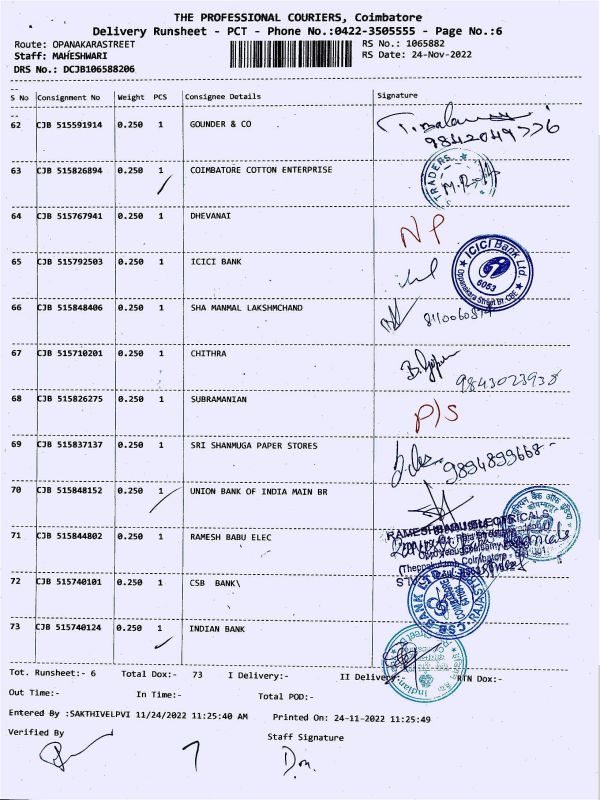 THE PROFESSIONAL COURIERS, Coimbatore
Delivery Runsheet - PCT - Phone No.:0422-3505555 - Page No.:6
Route: OPANAKARASTREET RS No.: 1065882
Staff: MAHESHWARI RS Date: 24-Nov-2022
DRS No.: DCJB106588206
S No Consignment No Weight PCS Consignee Details Signature
62 CJB 515591914 0.250 1 GOUNDER & CO
9842049776
63 CJB 515826894 0.250 1 COIMBATORE COTTON ENTERPRISE
TRADERS
64 CJB 515767941 0.250 1 DHEVANAI
NP
65 CJB 515792503 0.250 1 ICICI BANK
ICICI Bank Ltd.
6053
Oppanakara Street Br. CBE
66 CJB 515848406 0.250 1 SHA MANMAL LAKSHMCHAND
67 CJB 515710201 0.250 1 CHITHRA
9843023938
68 CJB 515826275 0.250 1 SUBRAMANIAN
P/S
69 CJB 515837137 0.250 1 SRI SHANMUGA PAPER STORES
9894899668
70 CJB 515848152 1 0.250 UNION BANK OF INDIA MAIN BR
71 CJB 515844802 0.250 1 RAMESH BABU ELEC
RAMESH BABU ELECTRICALS
(Theppakulam) Coimbatore
72 CJB 515740101 0.250 1 CSB BANK\
CSB BANK LTD
COIMBATORE
73 CJB 515740124 0.250 1 INDIAN BANK
Indian
Tot. Runsheet:- 6 Total Dox:- 73 I Delivery:- II Delivery:- RTN Dox:-
Out Time:- In Time:- Total POD:-
Entered By :SAKTHIVELPVI 11/24/2022 11:25:40 AM Printed On: 24-11-2022 11:25:49
Verified By Staff Signature
7